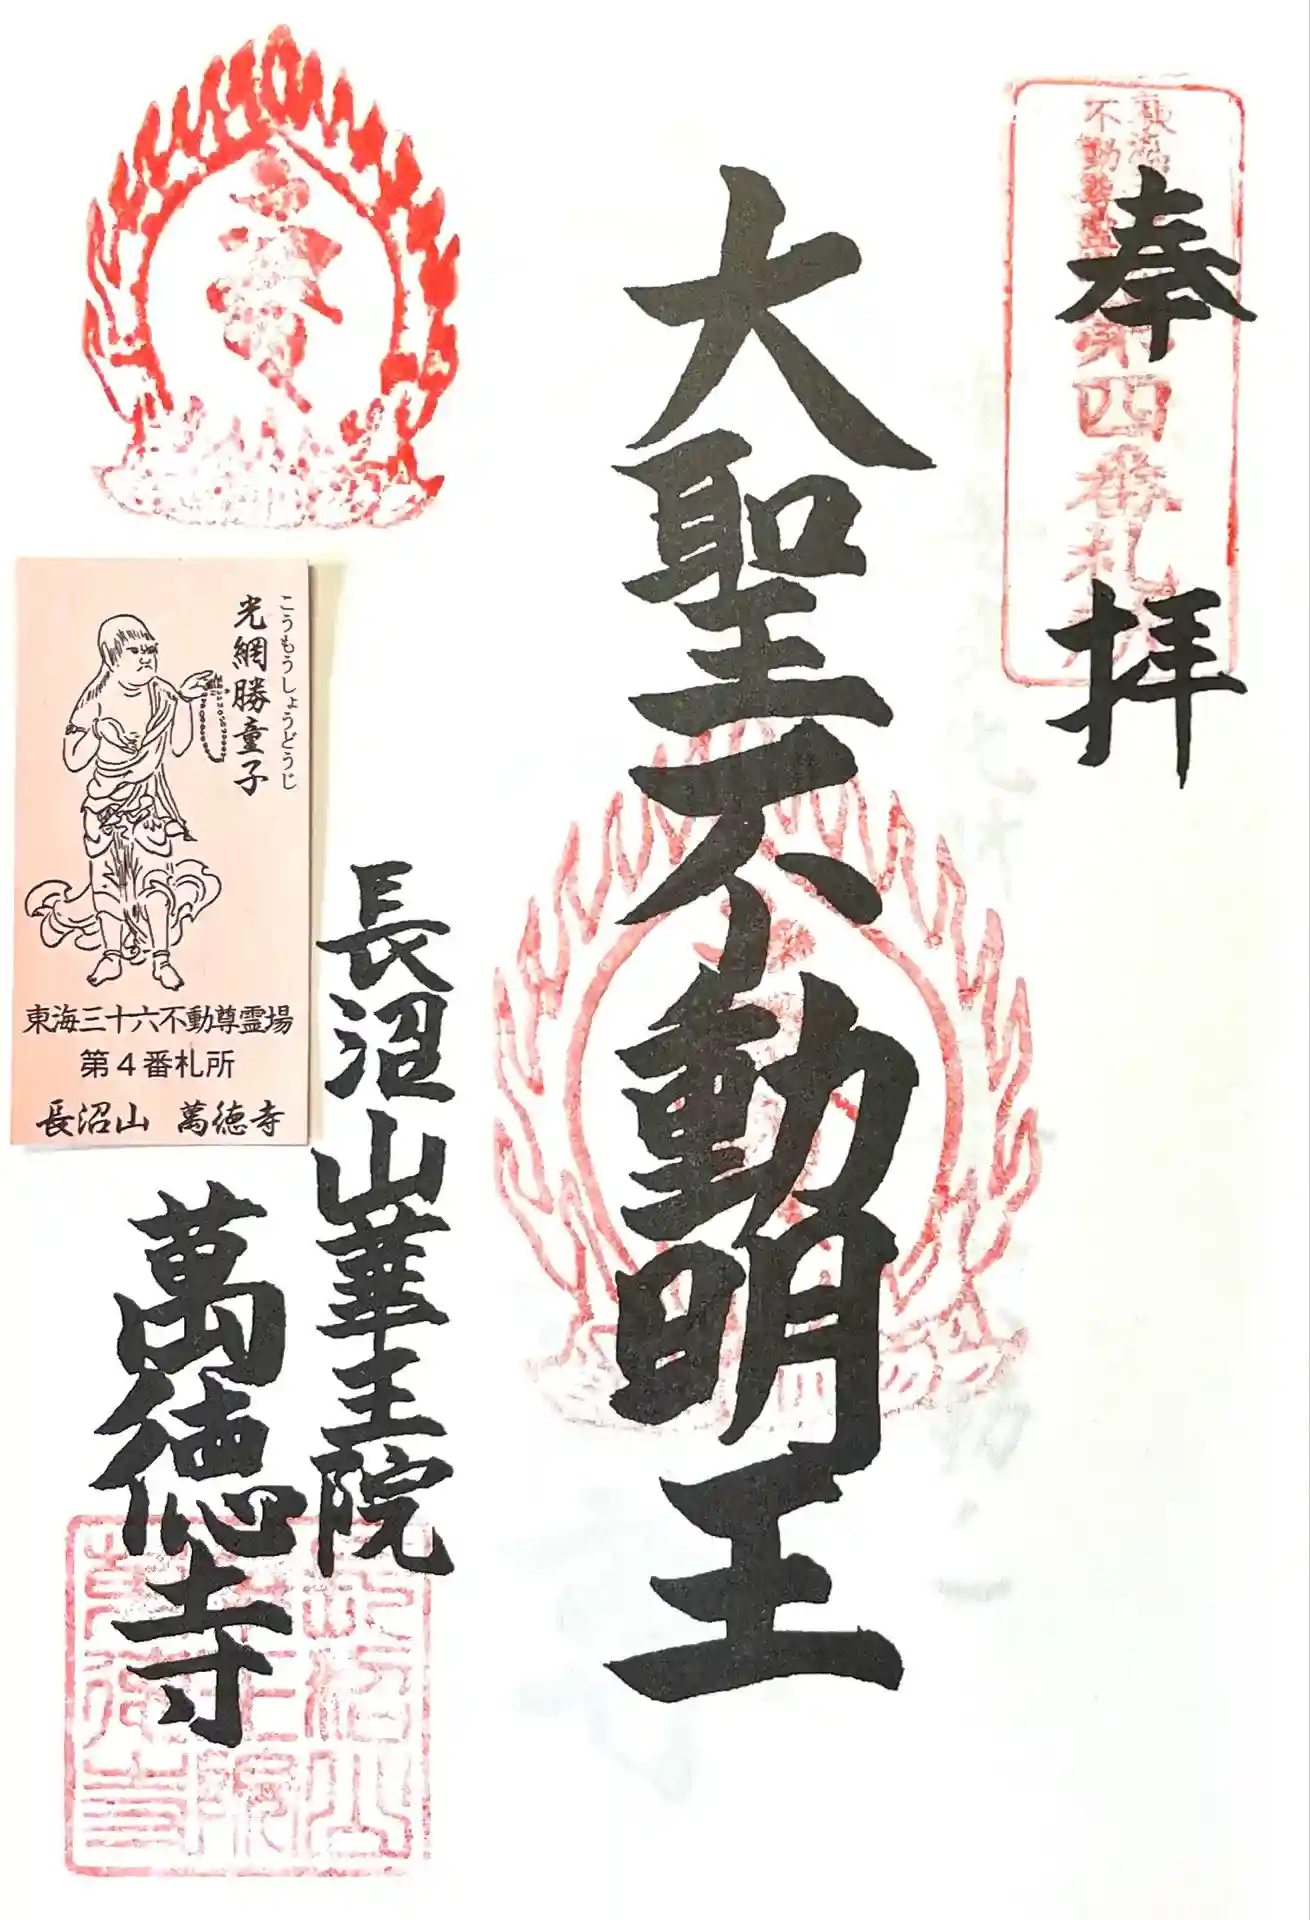 奉拝
東海
不動尊霊
第四番札所
大聖不動明王
長沼山華王院
萬徳寺
光網勝童子
こうもうしょうどうじ
東海三十六不動尊霊場
第4番札所
長沼山 萬徳寺
長沼山
華王院
萬徳寺